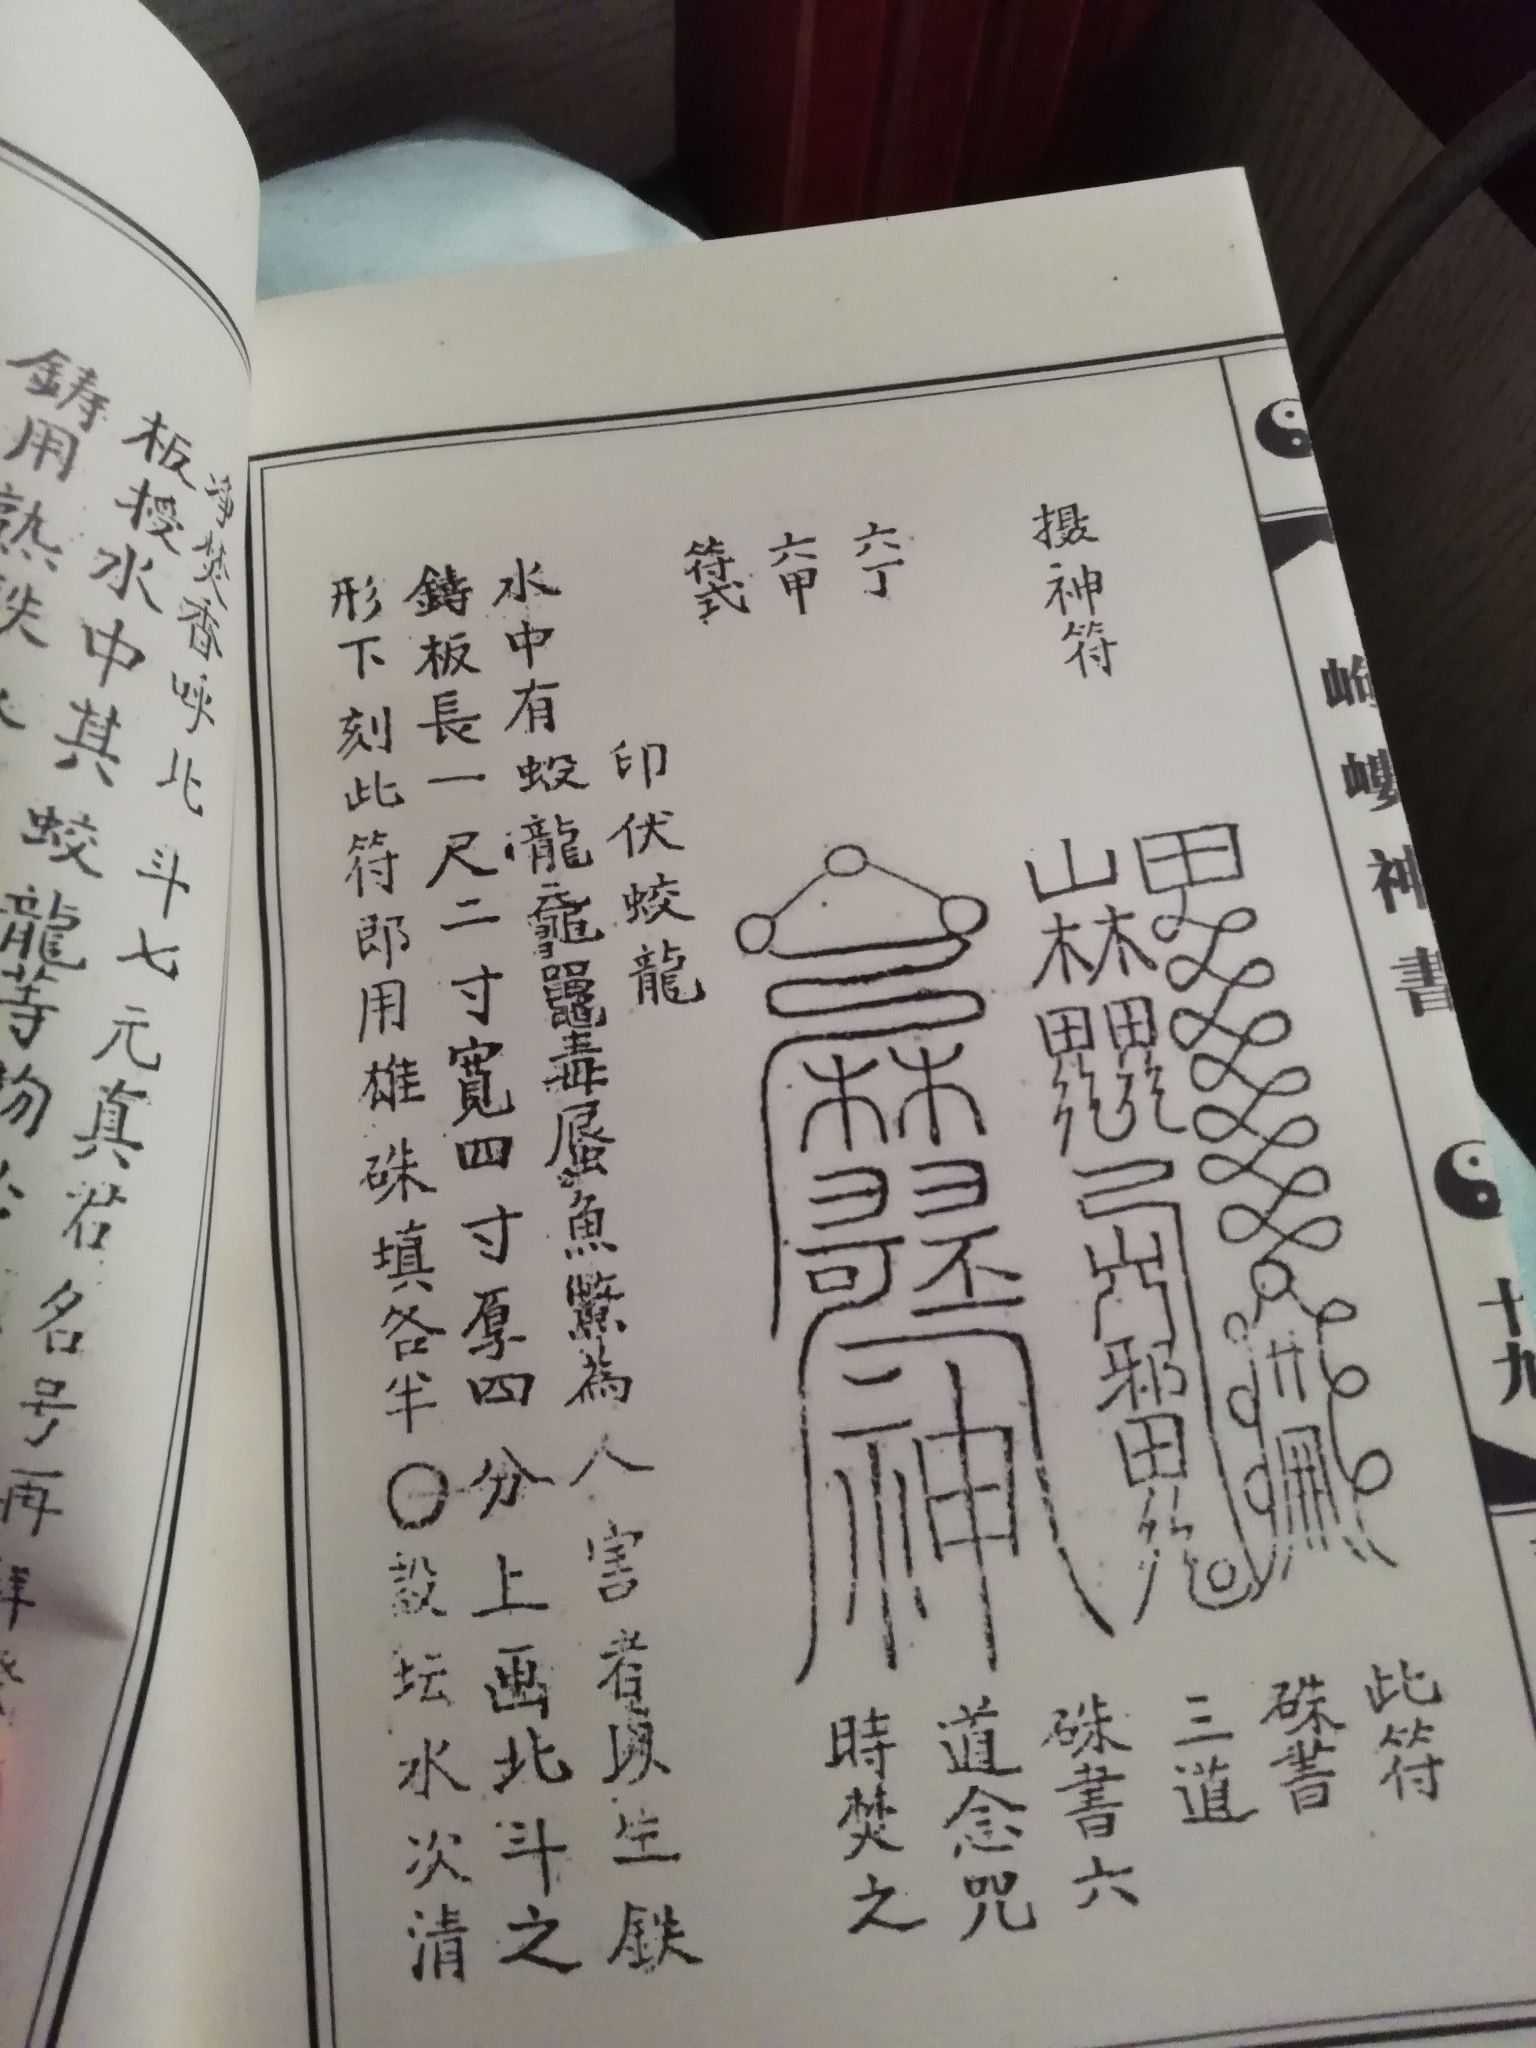 岣嶁神書
十九
摄神符
此符
硃書
三道
六丁
六甲
符式
硃書六
道念咒
時焚之
印伏蛟龍
水中有蛟龍黿鼉毒蜃魚鱉為人害者以生鉄
鑄板長一尺二寸寬四寸厚四分上画北斗之
形下刻此符郎用雄硃填各半〇設坛水次清
淨焚香呼北斗七元真君名号再
板投水中其蛟龍等物
鑄用熟鉄